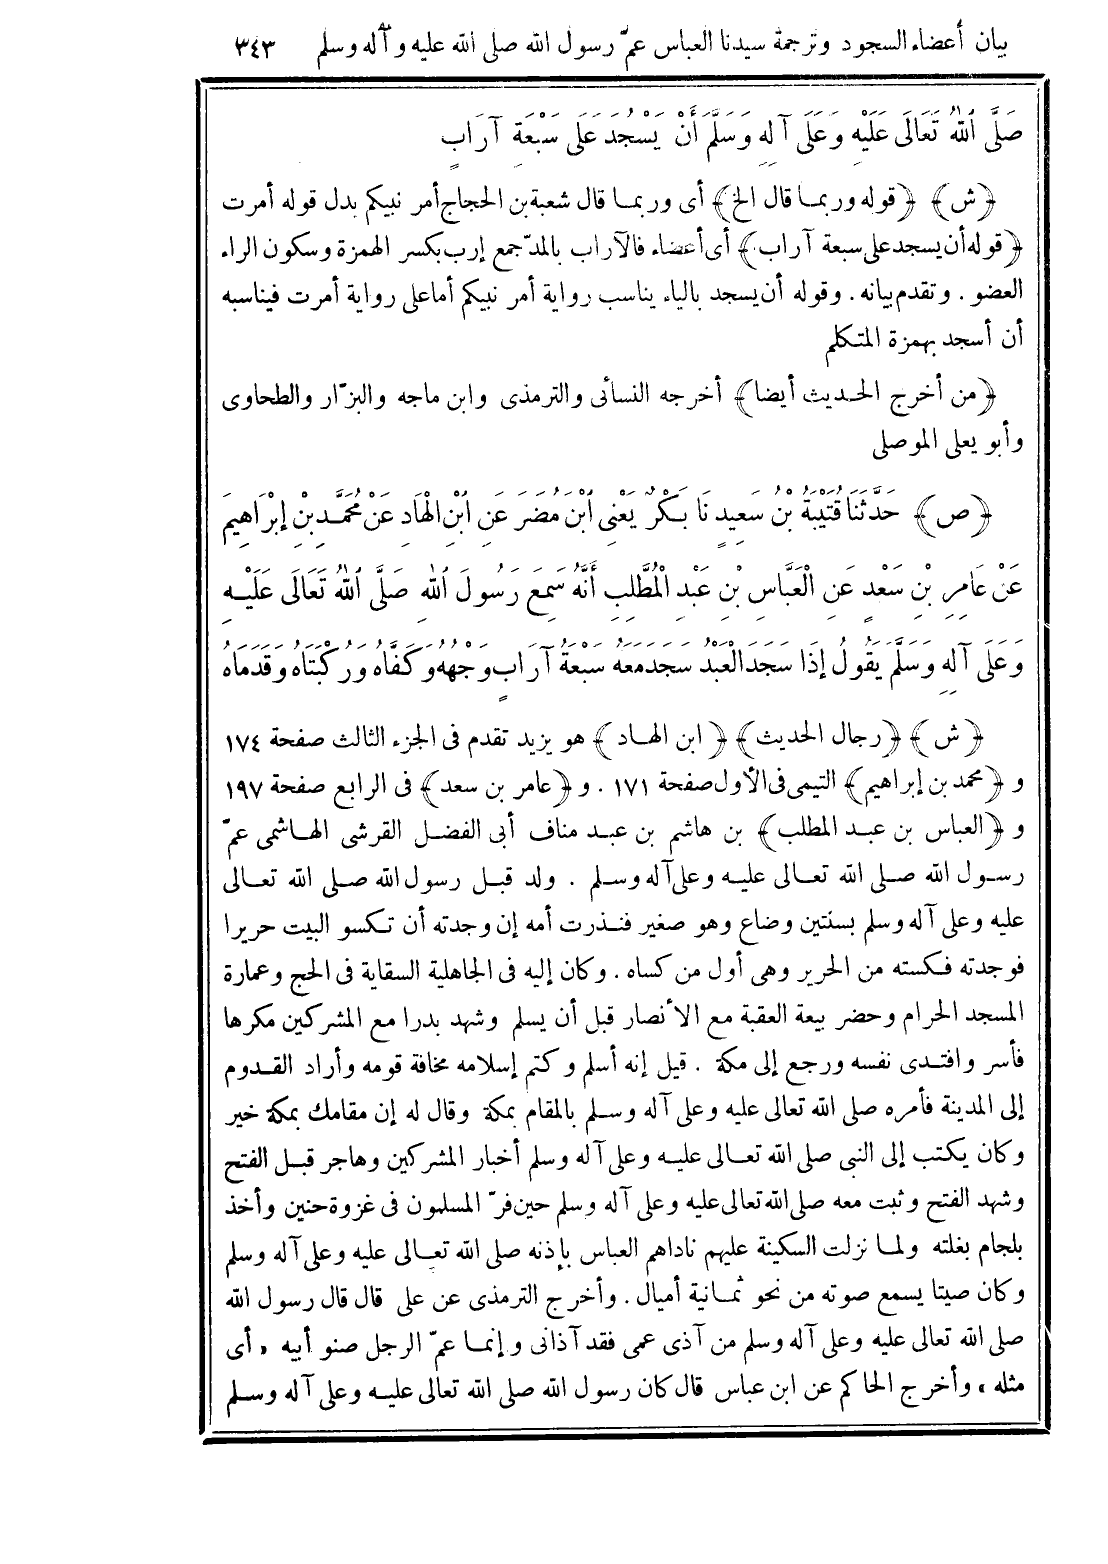 بيان أعضاء السجود وترجمة سيدنا العباس عمّ رسول الله صلى الله عليه وآله وسلم ٣٤٣
صَلَّى اللهُ تَعَالَى عَلَيْهِ وَعَلَى آلِهِ وَسَلَّمَ أَنْ يَسْجُدَ عَلَى سَبْعَةِ آرَابٍ
﴿ش﴾ ﴿قوله وربما قال الخ﴾ أى وربما قال شعبة بن الحجاج أمر نبيكم بدل قوله أمرت
﴿قوله أن يسجد على سبعة آراب﴾ أى أعضاء فالآراب بالمدّ جمع إرب بكسر الهمزة وسكون الراء
العضو . وتقدم بيانه . وقوله أن يسجد بالياء يناسب رواية أمر نبيكم أما على رواية أمرت فيناسبه
أن أسجد بهمزة المتكلم
﴿من أخرج الحديث أيضا﴾ أخرجه النسائى والترمذى وابن ماجه والبزّار والطحاوى
وأبو يعلى الموصلى
﴿ص﴾ حَدَّثَنَا قُتَيْبَةُ بْنُ سَعِيدٍ نَا بَكْرٌ يَعْنِى ابْنَ مُضَرَ عَنِ ابْنِ الْهَادِ عَنْ مُحَمَّدِ بْنِ إِبْرَاهِيمَ
عَنْ عَامِرِ بْنِ سَعْدٍ عَنِ الْعَبَّاسِ بْنِ عَبْدِ الْمُطَّلِبِ أَنَّهُ سَمِعَ رَسُولَ اللهِ صَلَّى اللهُ تَعَالَى عَلَيْهِ
وَعَلَى آلِهِ وَسَلَّمَ يَقُولُ إِذَا سَجَدَ الْعَبْدُ سَجَدَ مَعَهُ سَبْعَةُ آرَابٍ وَجْهُهُ وَكَفَّاهُ وَرُكْبَتَاهُ وَقَدَمَاهُ
﴿ش﴾ ﴿رجال الحديث﴾ ﴿ابن الهاد﴾ هو يزيد تقدم فى الجزء الثالث صفحة ١٧٤
و ﴿محمد بن إبراهيم﴾ التيمى فى الأول صفحة ١٧١ . و ﴿عامر بن سعد﴾ فى الرابع صفحة ١٩٧
و ﴿العباس بن عبد المطلب﴾ بن هاشم بن عبد مناف أبى الفضل القرشى الهاشمى عمّ
رسول الله صلى الله تعالى عليه وعلى آله وسلم . ولد قبل رسول الله صلى الله تعالى
عليه وعلى آله وسلم بسنتين وضاع وهو صغير فنذرت أمه إن وجدته أن تكسو البيت حريرا
فوجدته فكسته من الحرير وهى أول من كساه . وكان إليه فى الجاهلية السقاية فى الحج وعمارة
المسجد الحرام وحضر بيعة العقبة مع الأنصار قبل أن يسلم وشهد بدرا مع المشركين مكرها
فأسر وافتدى نفسه ورجع إلى مكة . قيل إنه أسلم وكتم إسلامه مخافة قومه وأراد القدوم
إلى المدينة فأمره صلى الله تعالى عليه وعلى آله وسلم بالمقام بمكة وقال له إن مقامك بمكة خير
وكان يكتب إلى النبى صلى الله تعالى عليه وعلى آله وسلم أخبار المشركين وهاجر قبل الفتح
وشهد الفتح وثبت معه صلى الله تعالى عليه وعلى آله وسلم حين فرّ المسلمون فى غزوة حنين وأخذ
بلجام بغلته ولما نزلت السكينة عليهم ناداهم العباس بإذنه صلى الله تعالى عليه وعلى آله وسلم
وكان صيتا يسمع صوته من نحو ثمانية أميال . وأخرج الترمذى عن على قال قال رسول الله
صلى الله تعالى عليه وعلى آله وسلم من آذى عمى فقد آذانى وإنما عمّ الرجل صنو أبيه «أى
مثله» وأخرج الحاكم عن ابن عباس قال كان رسول الله صلى الله تعالى عليه وعلى آله وسلم